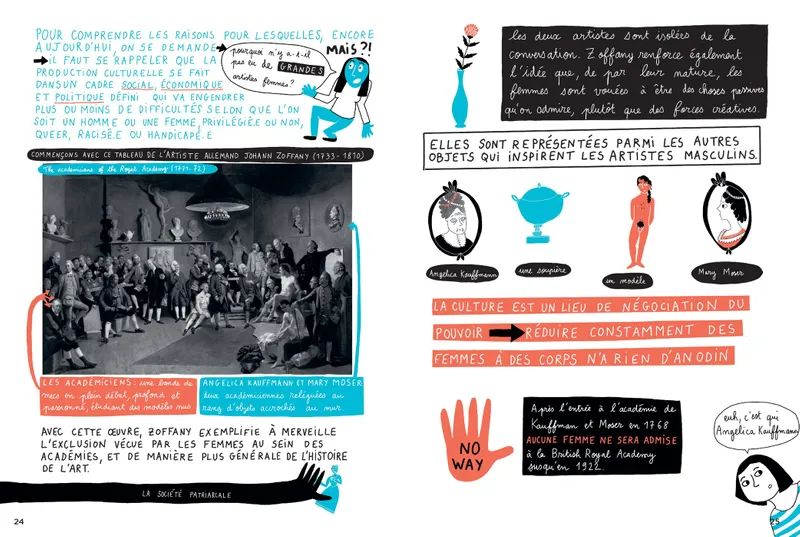 POUR COMPRENDRE LES RAISONS POUR LESQUELLES, ENCORE
AUJOURD'HUI, ON SE DEMANDE
➡IL FAUT SE RAPPELER QUE LA
PRODUCTION CULTURELLE SE FAIT
DANS UN CADRE SOCIAL, ÉCONOMIQUE
ET POLITIQUE DÉFINI QUI VA ENGENDRER
PLUS OU MOINS DE DIFFICULTÉS SELON QUE L'ON
SOIT UN HOMME OU UNE FEMME, PRIVILÉGIÉ.E OU NON,
QUEER, RACISÉ.E OU HANDICAPÉ.E
pourquoi n'y a-t-il
pas eu de GRANDES
artistes femmes?
MAIS?!
COMMENÇONS AVEC CE TABLEAU DE L'ARTISTE ALLEMAND JOHANN ZOFFANY (1733-1810)
The academicians of the Royal Academy (1771-72)
LES ACADÉMICIENS : une bande de
mecs en plein débat, profond et
passionné, étudiant des modèles nus
ANGELICA KAUFFMANN ET MARY MOSER
deux académiciennes reléguées au
rang d'objets accrochés au mur.
AVEC CETTE ŒUVRE, ZOFFANY EXEMPLIFIE À MERVEILLE
L'EXCLUSION VÉCUE PAR LES FEMMES AU SEIN DES
ACADÉMIES, ET DE MANIÈRE PLUS GÉNÉRALE DE L'HISTOIRE
DE L'ART.
LA SOCIÉTÉ PATRIARCALE
24
les deux artistes sont isolées de la
conversation. Zoffany renforce également
l'idée que, de par leur nature, les
femmes sont vouées à être des choses passives
qu'on admire, plutôt que des forces créatives.
ELLES SONT REPRÉSENTÉES PARMI LES AUTRES
OBJETS QUI INSPIRENT LES ARTISTES MASCULINS.
Angelica Kauffmann
une soupière
un modèle
Mary Moser
LA CULTURE EST UN LIEU DE NÉGOCIATION DU
POUVOIR ➡ RÉDUIRE CONSTAMMENT DES
FEMMES À DES CORPS N'A RIEN D'ANODIN
NO
WAY
Après l'entrée à l'académie de
Kauffman et Moser en 1768
AUCUNE FEMME NE SERA ADMISE
à la British Royal Academy
jusqu'en 1922.
euh, c'est qui
Angelica Kauffmann
25